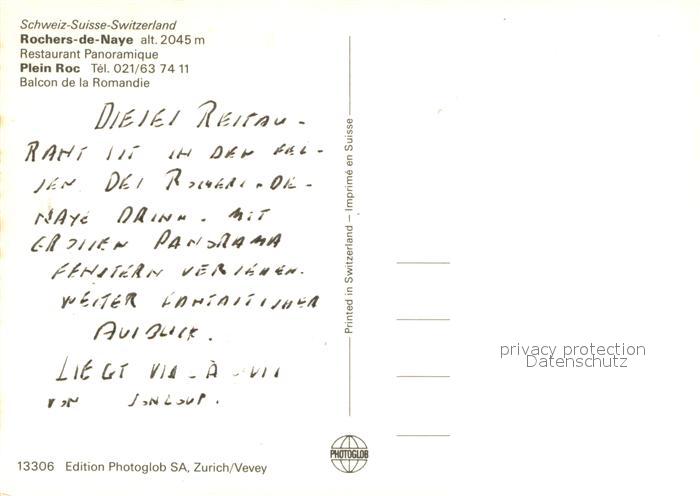 Schweiz-Suisse-Switzerland
Rochers-de-Naye alt. 2045 m
Restaurant Panoramique
Plein Roc Tél. 021/63 74 11
Balcon de la Romandie
DIESES RESTAU-
RANT IST IN DEN FEL-
SEN DES ROCHERS-DE-
NAYE DRIN. MIT
GROSSEN PANORAMA
FENSTERN VERSEHEN.
WEITER FANTASTISCHER
AUSBLICK.
LIEGT VIS-À-VIS
VON SONLOUP.
Printed in Switzerland — Imprimé en Suisse
privacy protection
Datenschutz
PHOTOGLOB
13306 Edition Photoglob SA, Zurich/Vevey